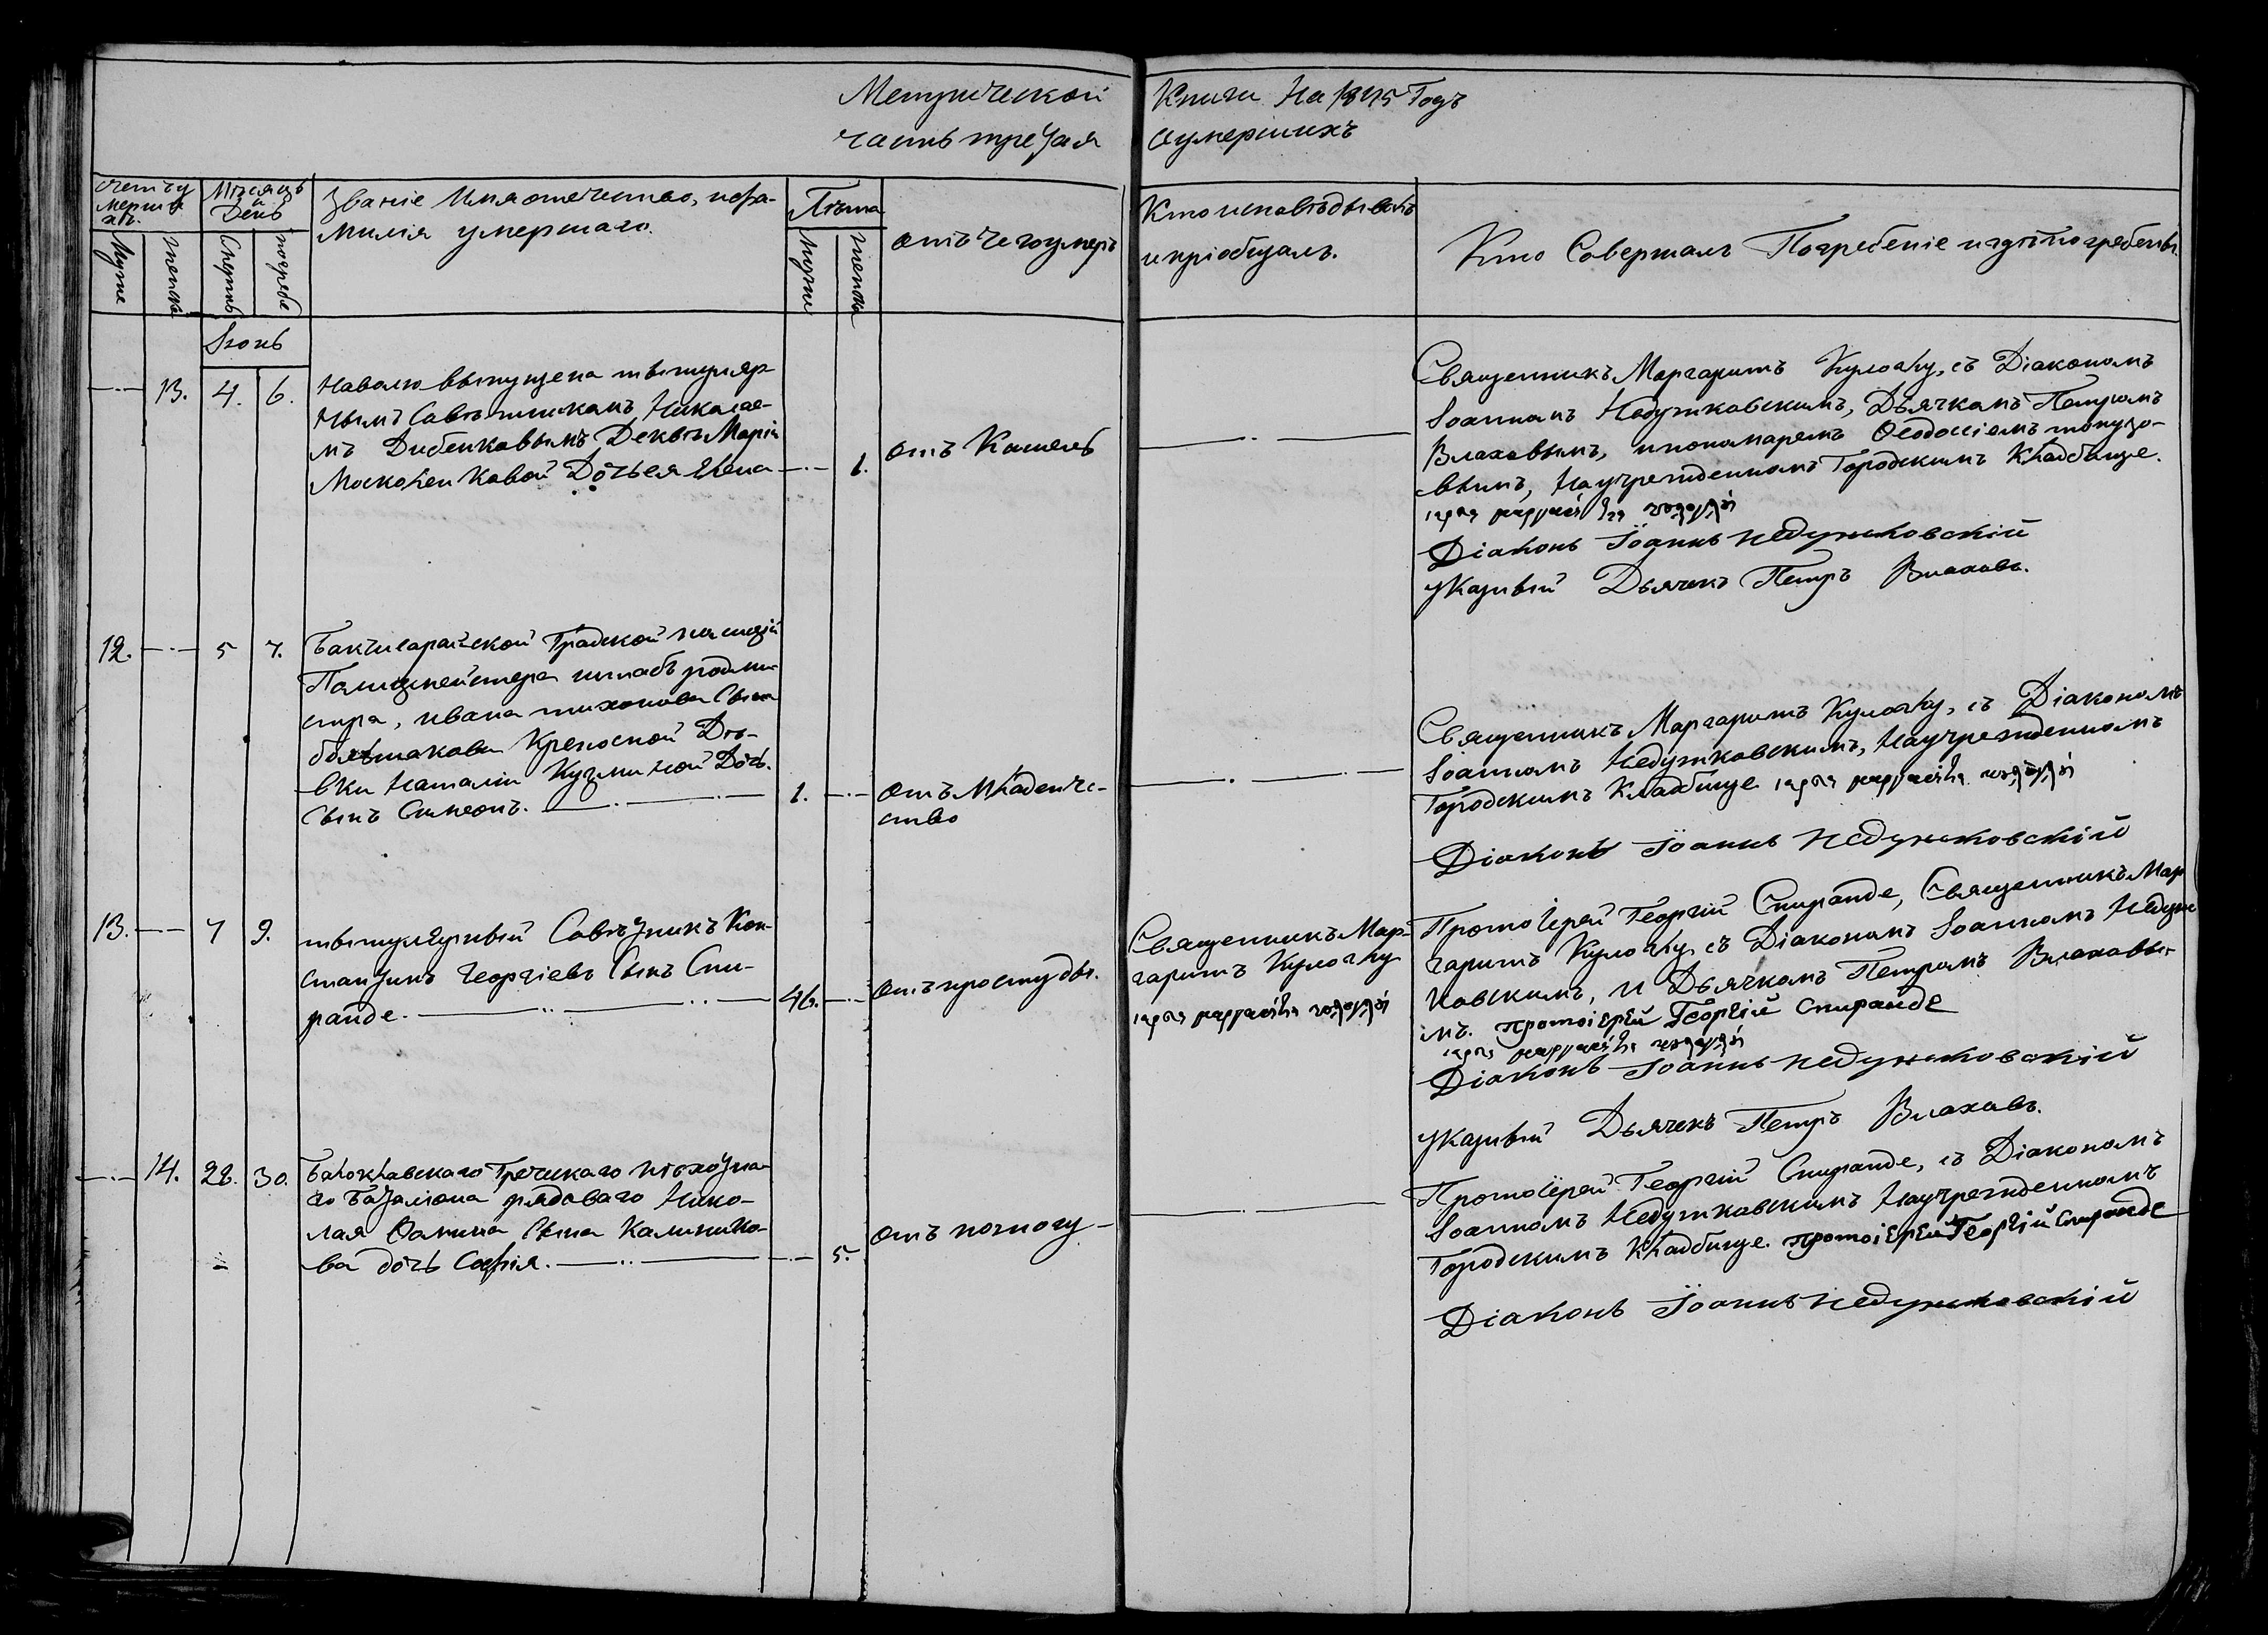 Метрической Книги На 1845 Годъ
часть третая оумершихъ
счетъ у
мерши
хъ.
Мѣсяцъ
и
День
Званіе Имя отечество, ифа-
милія умершаго.
Лѣта
отъ чего умеръ
Кто исповѣдывалъ
и пріобщалъ.
Кто Совершалъ Погребеніе и гдѣ погребены.
Муже
женска
Смерть
погребе
Муже
женска
Іюнь
13. 4. 6.
На волю выпущена титуляр
нымъ Совѣтникомъ Николае-
мъ Дибенковымъ Девкѣ Маріи
Московенковой Дочь ея Елена
1.
отъ Кашель
Священникъ Маргаритъ Кулочку, съ Діакономъ
Іоанномъ Недужковскимъ, Дьячкомъ Петромъ
Влаховымъ, и пономаремъ Ѳеодосіемъ
вымъ, На учрежденномъ Городскимъ Кладбище.
Діаконъ Іоаннъ Недужковскій
Указный Дьячекъ Петръ Влаховъ.
12. 5 7.
Бакчисарайской Градской полиціи
Полицмейстера штабъ родми-
стра, ивана тихонова Сына
большакова Крепосной Дѣ-
вки Наталіи Кузминой Дочь.
Сынъ Симеонъ.
1.
Отъ Младенче-
ство
Священникъ Маргаритъ Кулочку, съ Діакономъ
Іоанномъ Недужковскимъ, На учрежденномъ
Городскимъ Кладбище
Діаконъ Іоаннъ Недужковскій
13. 7 9.
титулярный Совѣтникъ Кон-
стантинъ Георгіевъ Сынъ Спи-
ранде.
46.
отъ простуды.
Священникъ Мар-
гаритъ Кулочку
Протоіерей Георгій Спиранде, Священникъ Мар
гаритъ Кулочку, съ Діакономъ Іоанномъ Недуж
ковскимъ, и Дьячкомъ Петромъ Влаховы-
мъ. протоіерей Георгій Спиранде
Діаконъ Іоаннъ Недужковскій
Указный Дьячекъ Петръ Влаховъ.
14. 28. 30.
Балоклавскаго Греческаго пѣхотна-
го Баталіона рядоваго Нико-
лая Ѳомина Сына Калинико-
ва дочь Софія.
5.
отъ поносу
Протоіерей Георгій Спиранде, съ Діакономъ
Іоанномъ Недужковскимъ На учрежденномъ
Городскимъ Кладбище. протоіерей Георгій Спиранде
Діаконъ Іоаннъ Недужковскій